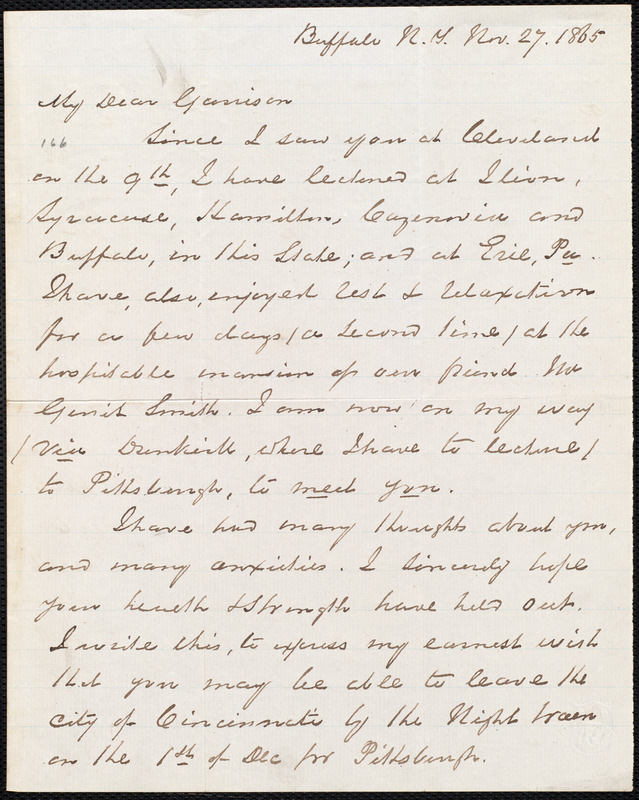 Buffalo N.Y. Nov. 27. 1865
My Dear Garrison
166
Since I saw you at Cleveland
on the 9th, I have lectured at Ilion,
Syracuse, Hamilton, Cazenovia and
Buffalo, in this State; and at Erie, Pa.
I have, also, enjoyed rest & relaxation
for a few days (a second time) at the
hospitable mansion of our friend Mr
Gerrit Smith. I am now on my way
(via Dunkirk, where I have to lecture)
to Pittsburgh, to meet you.
I have had many thoughts about you,
and many anxieties. I sincerely hope
your health & strength have held out.
I write this, to express my earnest wish
that you may be able to leave the
city of Cincinnati by the Night train
on the 1st of Dec for Pittsburgh.